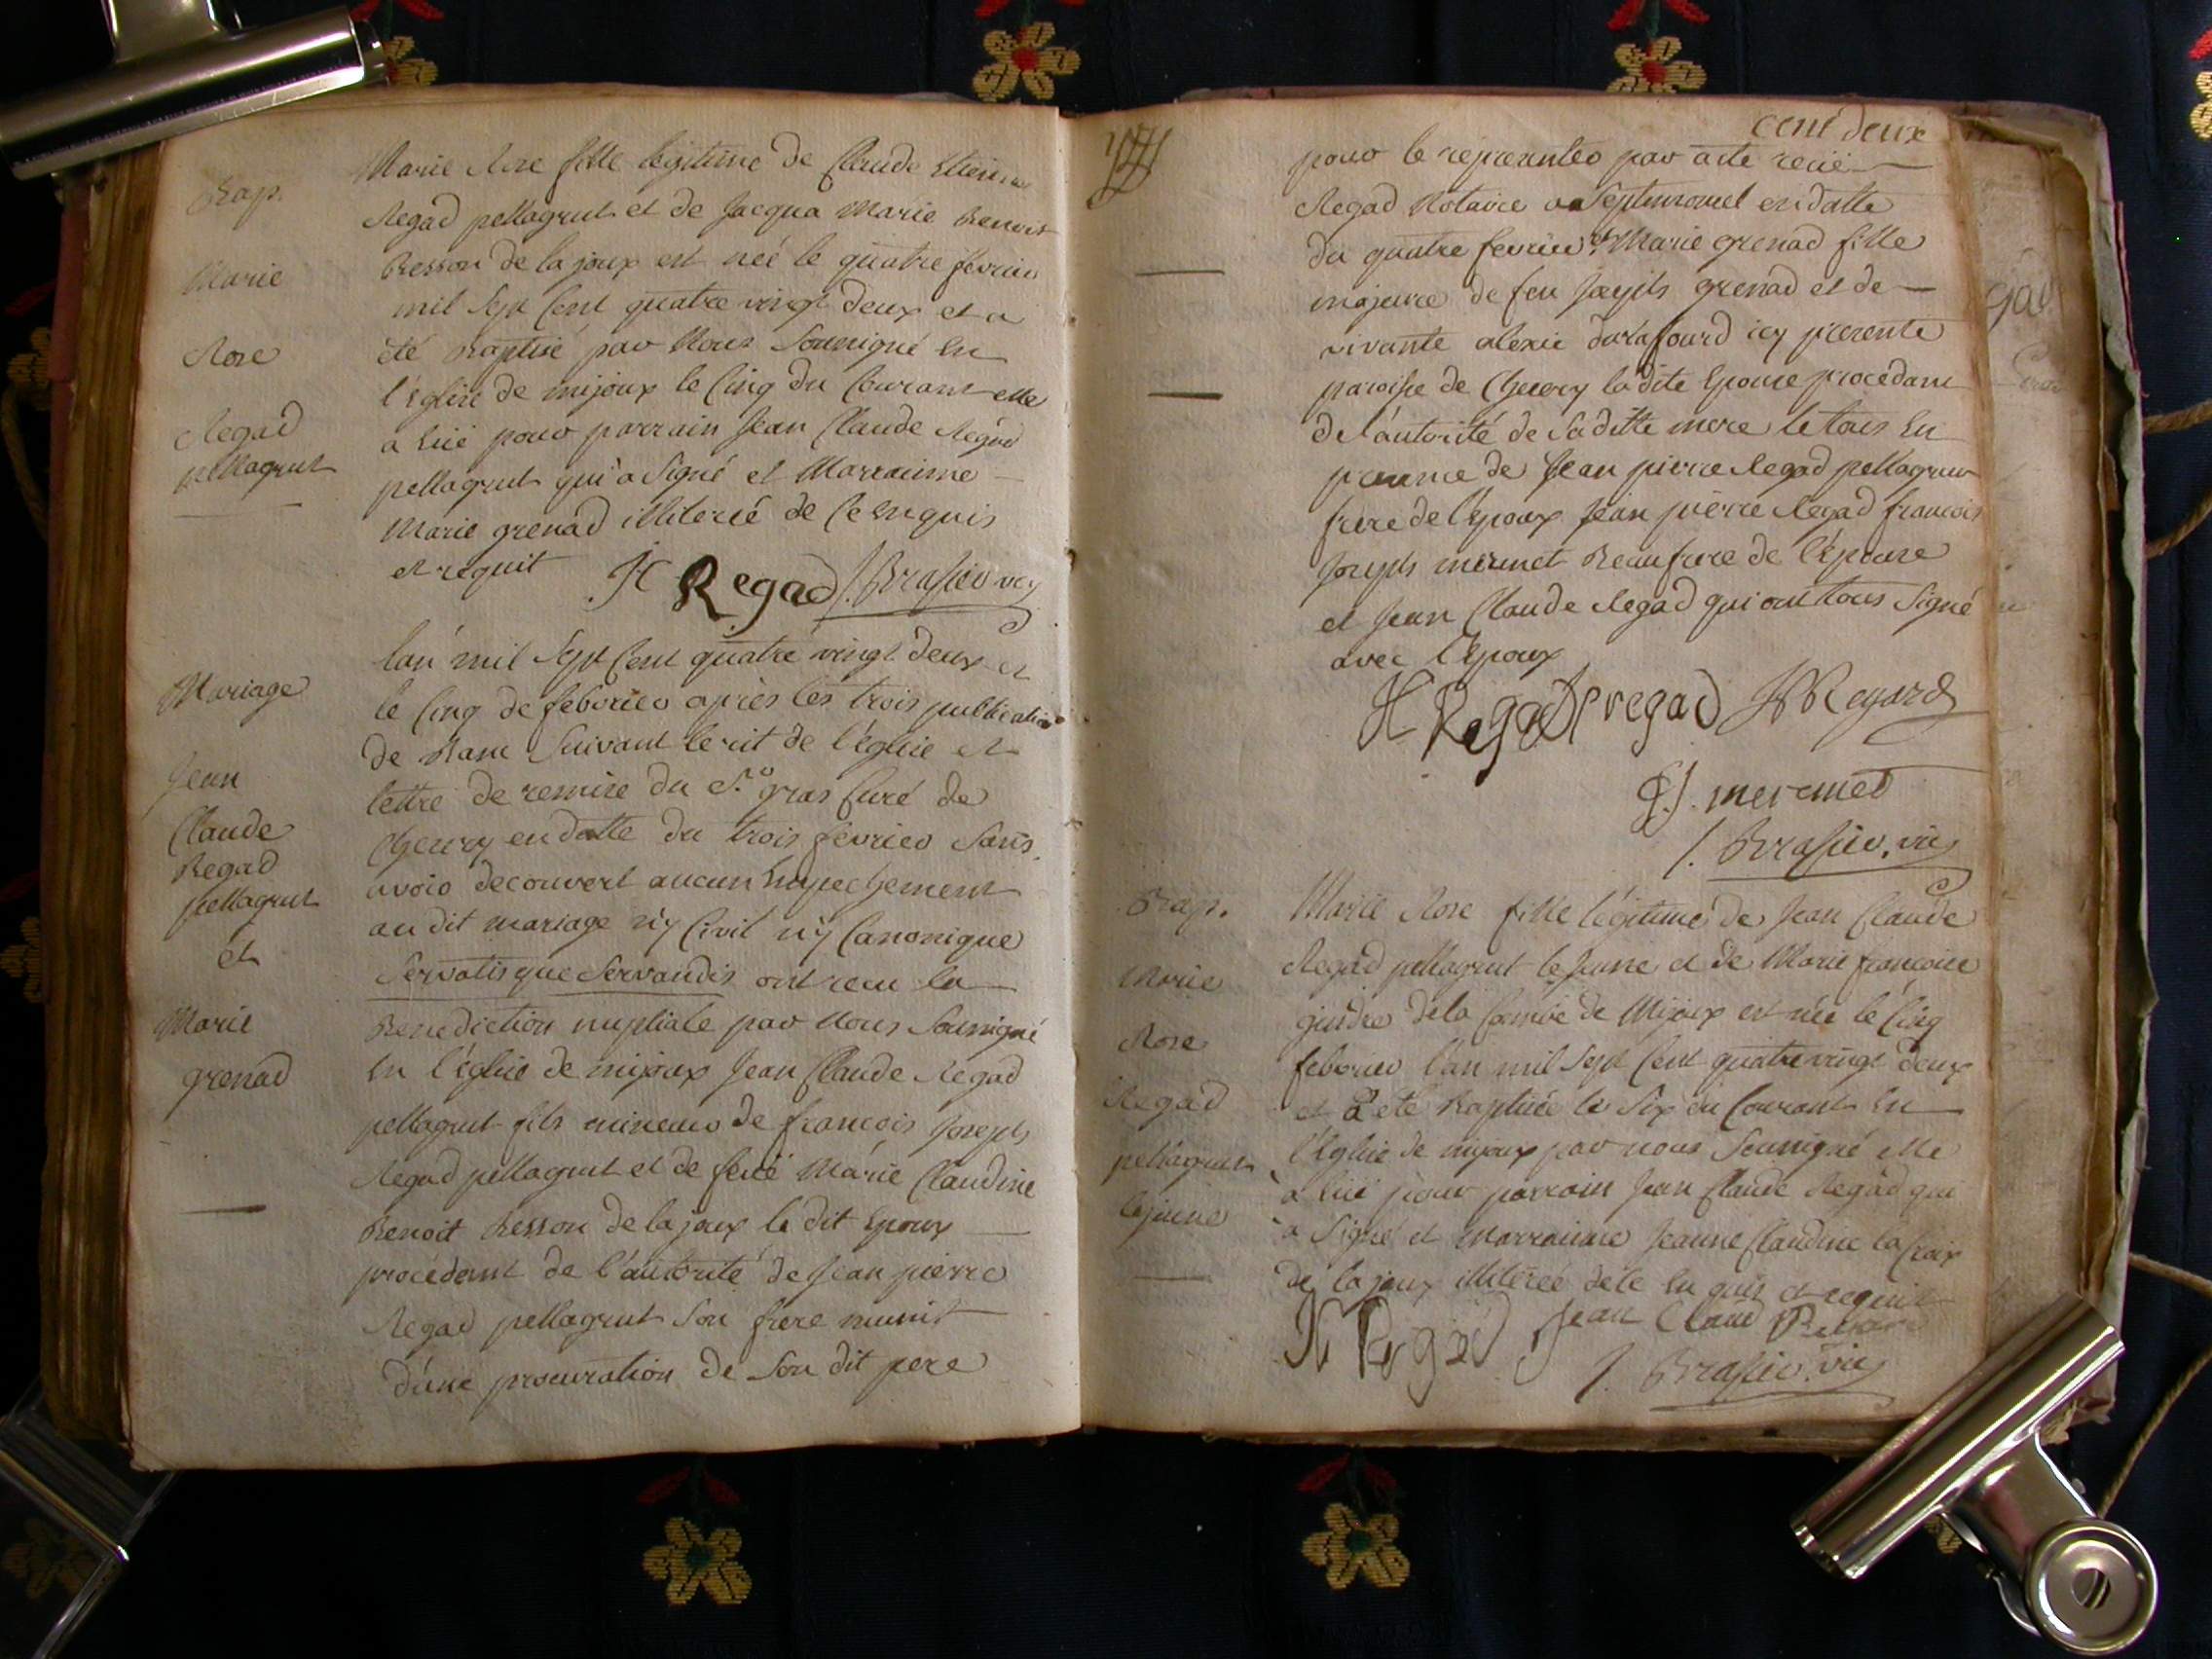 Bap.
Marie
Rose
Regad
pellagrut
Marie Rose fille legitime de Claude Etienne
Regad pellagrut et de Jacqua Marie Benoit
Besson de la joux est néé le quatre fevrier
mil Sept Cent quatre vingt deux et a
été Baptisé par Nous Soussigné En
l'Eglise de mijoux le Cinq du Courant elle
a Eüe pour parrain Jean Claude Regad
pellagrut qui a Signé et Marrainne
Marie grenad illiterée de Ce Enquis
et requit
JC Regad J. Brasier vic
Mariage
Jean
Claude
Regad
pellagrut
et
Marie
grenad
lan mil Sept Cent quatre vingt deux et
le Cinq de febvrier après les trois publications
de Banc Suivant le rit de l'église et
lettre de remise du Sr gras Curé de
Chevry en datte du trois fevrier Sans
avoir decouvert aucun Empechement
au dit mariage ny Civil ny Canonique
Servatisque Servandis ont recu la
Benediction nuptiale par Nous Soussigné
En l'église de mijoux Jean Claude Regad
pellagrut fils mineur de francois Joseph
Regad pellagrut et de feüe Marie Claudine
Benoit Besson de la joux le dit Epoux
procédant de l'autorité de Jean pierre
Regad pellagrut Son frere munit
d'une procuration de Son dit pere
cent deux
pour le representer par acte recüe
Regad Notaire a Septmoncel en datte
du quatre fevrier et Marie grenad fille
majeure de feu Joseph grenad et de
vivante alexie durafourd icy presente
paroisse de Chevry la dite Epouse procedant
de l'autorité de Sa ditte mere le tous En
presence de Jean pierre Regad pellagrut
frere de l'Epoux Jean pierre Regad francois
Joseph mermet Beaufrere de l'Epouse
et Jean Claude Regad qui ont tous Signé
avec l'Epoux
JC Regad JP regad JP Regard
f.J. mermet
J. Brasier, vic
Bap.
Marie
Rose
Regad
pellagrut
le jeune
Marie Rose fille légitime de Jean Claude
Regad pellagrut le Jeune et de Marie francoise
gindre de la Combe de Mijoux est née le Cinq
febvrier l'an mil Sept Cent quatre vingt deux
et a été Baptisée le Six du Courant En
l'Eglise de mijoux par nous Soussigné elle
a Eüe pour parrain Jean Claude Regad qui
a Signé et Marrainne Jeanne Claudine la Croix
de la joux illiterée de Ce En quis et requit
JC Regad Jean Claud
J. Brasier, vic